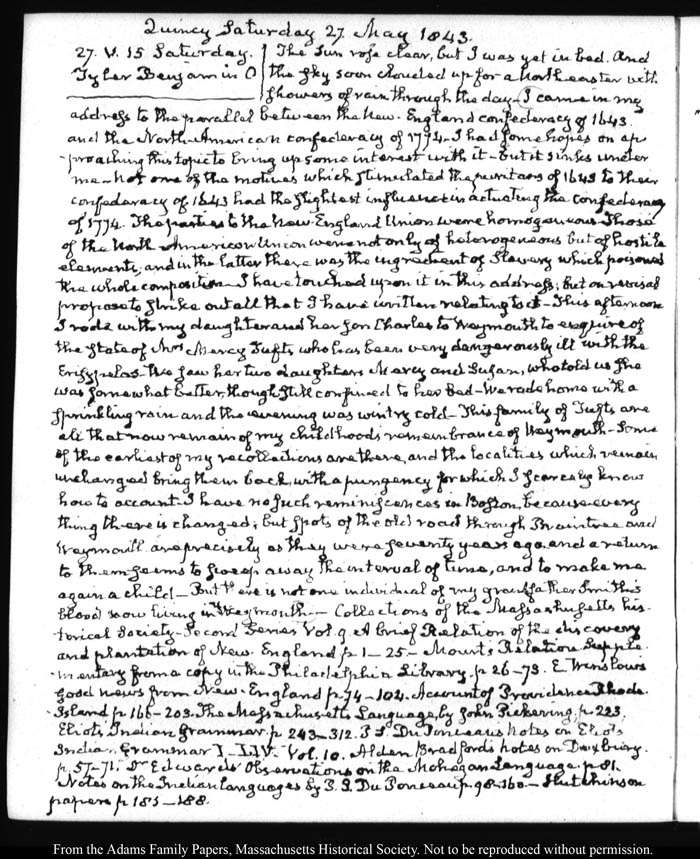 Quincy Saturday 27. May 1843.
27. V. 15 Saturday. The Sun rose clear, but I was yet in bed. And
Tyler Benjamin O the sky soon clouded up for a Northeaster with
showers of rain through the day. I came in my
address to the parallel between the New-England confederacy of 1643.
and the North-American confederacy of 1774. I had some hopes on ap-
-proaching this topic to bring up some interest with it- but it sinks under
me- Not one of the motives which stimulated the puritans of 1643 to their
confederacy of 1643 had the slightest influence in actuating the confederacy
of 1774. The parties to the New-England Union were homogeneous- Those
of the North American Union were not only of heterogeneous but of hostile
elements, and in the latter there was the ingredient of Slavery which poisoned
the whole composition- I have touched upon it in this address; but on revisal
propose to strike out all that I have written relating to it- This afternoon
I rode with my daughter and her son Charles to Weymouth to enquire of
the state of Mrs Mercy Tufts who has been very dangerously ill with the
Erisypelas- We saw her two daughters Mercy and Susan, who told us she
was somewhat better, though still confined to her Bed- We rode home with a
sprinkling rain and the evening was wintry cold- This family of Tufts are
all that now remain of my childhood's remembrance of Weymouth- Some
of the earliest of my recollections are there, and the localities which remain
unchanged bring them back with a pungency for which I scarcely know
how to account- I have no such reminiscences in Boston, because every
thing there is changed; but spots of the old road through Braintree and
Weymouth are precisely as they were seventy years ago and a return
to them seems to sweep away the interval of time, and to make me
again a child- But there is not one individual of my grandfather Smith's
blood now living in Weymouth- Collections of the Massachusetts his-
torical Society- Second Series Vol. 9. A brief Relation of the discovery
and plantation of New England p 1-25- Mourt's Relation Supple-
-mentary from a copy in the Philadelphia Library. p 26-73. E. Winslow's
good news from New-England p 74-104. Account of Providence Rhode-
Island p 166-203. The Massachusetts Language, by John Pickering, p. 223.
Eliot's Indian Grammar. p 243-312. P S. Du Ponceau's notes on Eliot's
Indian Grammar I- Vol. 10. Alden Bradford's notes on Duxbury.
p. 57-71. Dr Edwards' Observations on the Mohegan Language. p 81.
Notes on the Indian languages by P. S. Du Ponceau p. 98-160- Hutchinson
papers p 181-188.
From the Adams Family Papers, Massachusetts Historical Society. Not to be reproduced without permission.